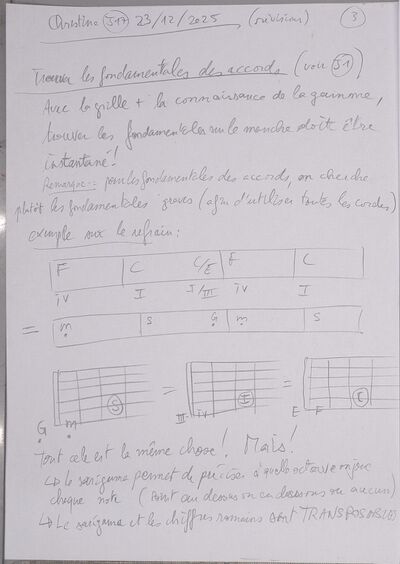 Christina J17 23/12/2025 (révision) 3
Trouver les fondamentales des accords (voir J1)
Avec la grille + la connaissance de la gamme,
trouver les fondamentales sur le manche doit être
instantané!
Remarque: pour les fondamentales des accords, on cherche
plutôt les fondamentales graves (afin d'utiliser toutes les cordes)
exemple sur le refrain:
F C C/E F C
IV I I/III IV I
= m S G m S
S = I = C
G m III IV E F
Tout cela est la même chose! Mais!
↳ le sargama permet de préciser à quelle octave on joue
chaque note (point au dessus ou en dessous ou aucun)
↳ Le sargama et les chiffres romains sont TRANSPOSABLES